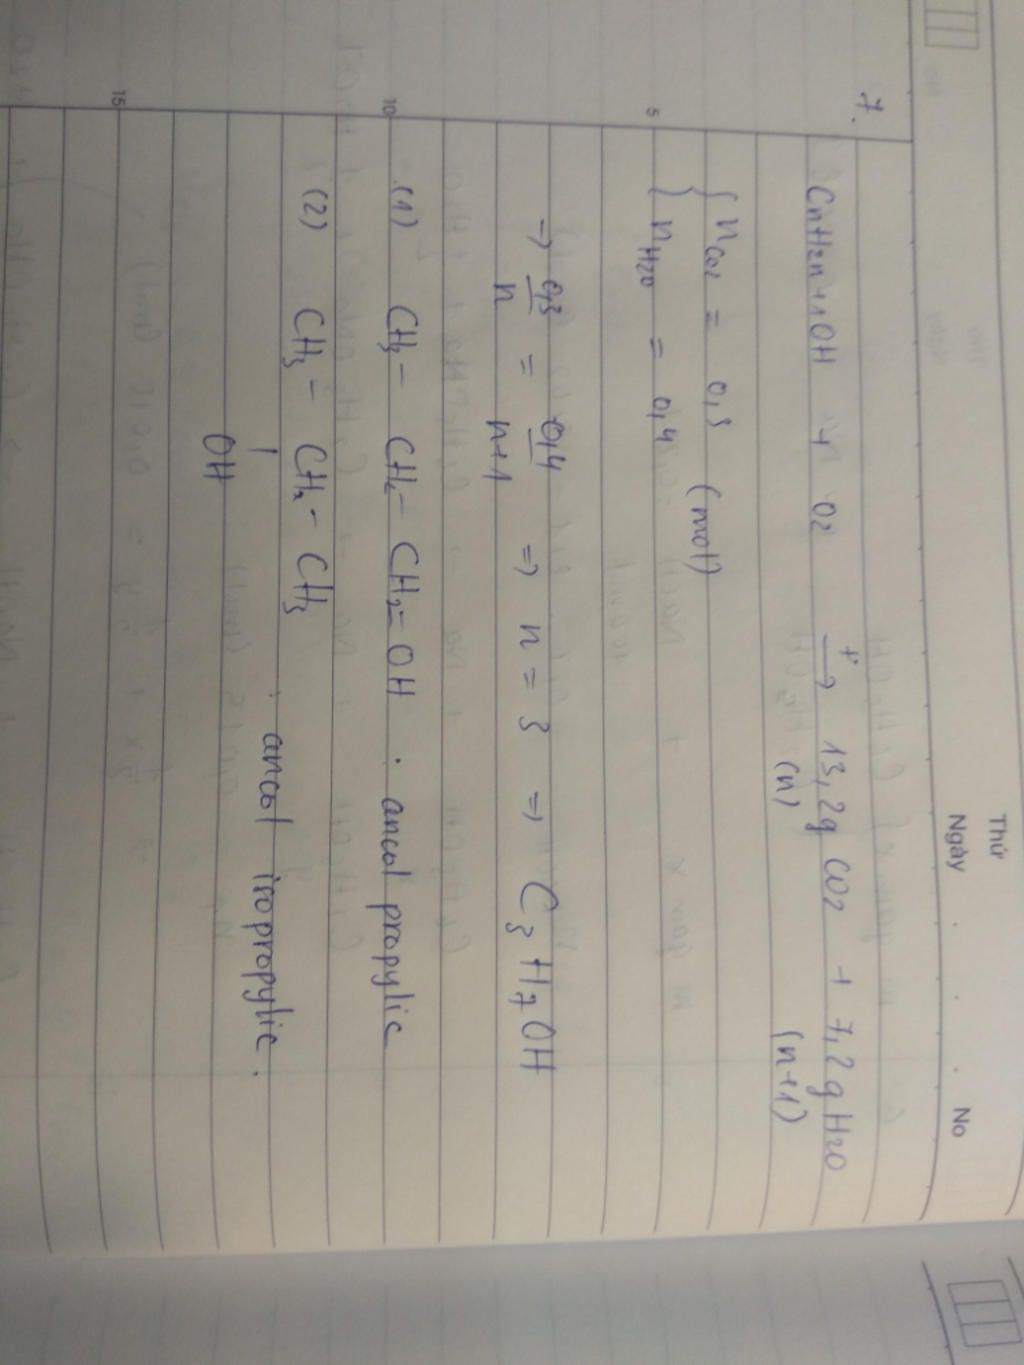 Thứ
Ngày . . . No
7. CnH2n+1OH + O2 t° → 13,2g CO2 + 7,2g H2O
(n) (n+1)
{ nCO2 = 0,3 (mol)
nH2O = 0,4
5
→ 0,3 = 0,4 ⇒ n = 3 ⇒ C3H7OH
n n+1
10
(1) CH3 - CH2 - CH2 - OH . ancol propylic
(2) CH3 - CH2 - CH3
|
OH . ancol isopropylic.
15